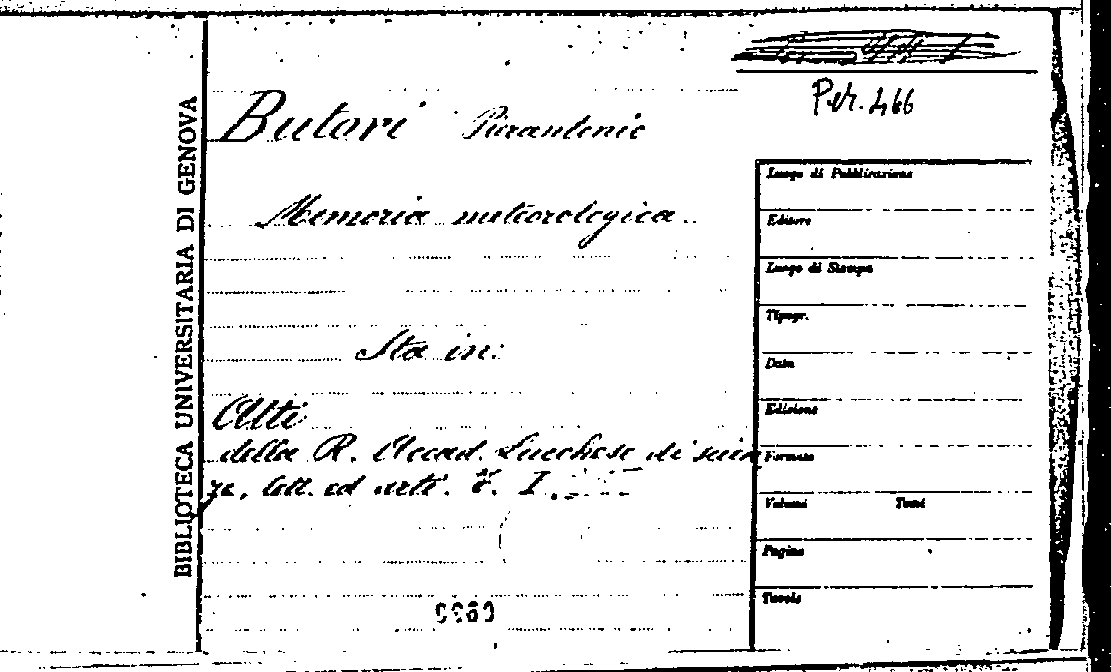 Per. 466
Butori Pierantonio
Memoria meteorologica.
Sta in:
Atti
della R. Accad. Lucchese di scien
ze, lett. ed arti. t. I.
BIBLIOTECA UNIVERSITARIA DI GENOVA
Luogo di Pubblicazione
Editore
Luogo di Stampa
Tipogr.
Data
Edizione
Formato
Volumi Tomi
Pagine
Tavole